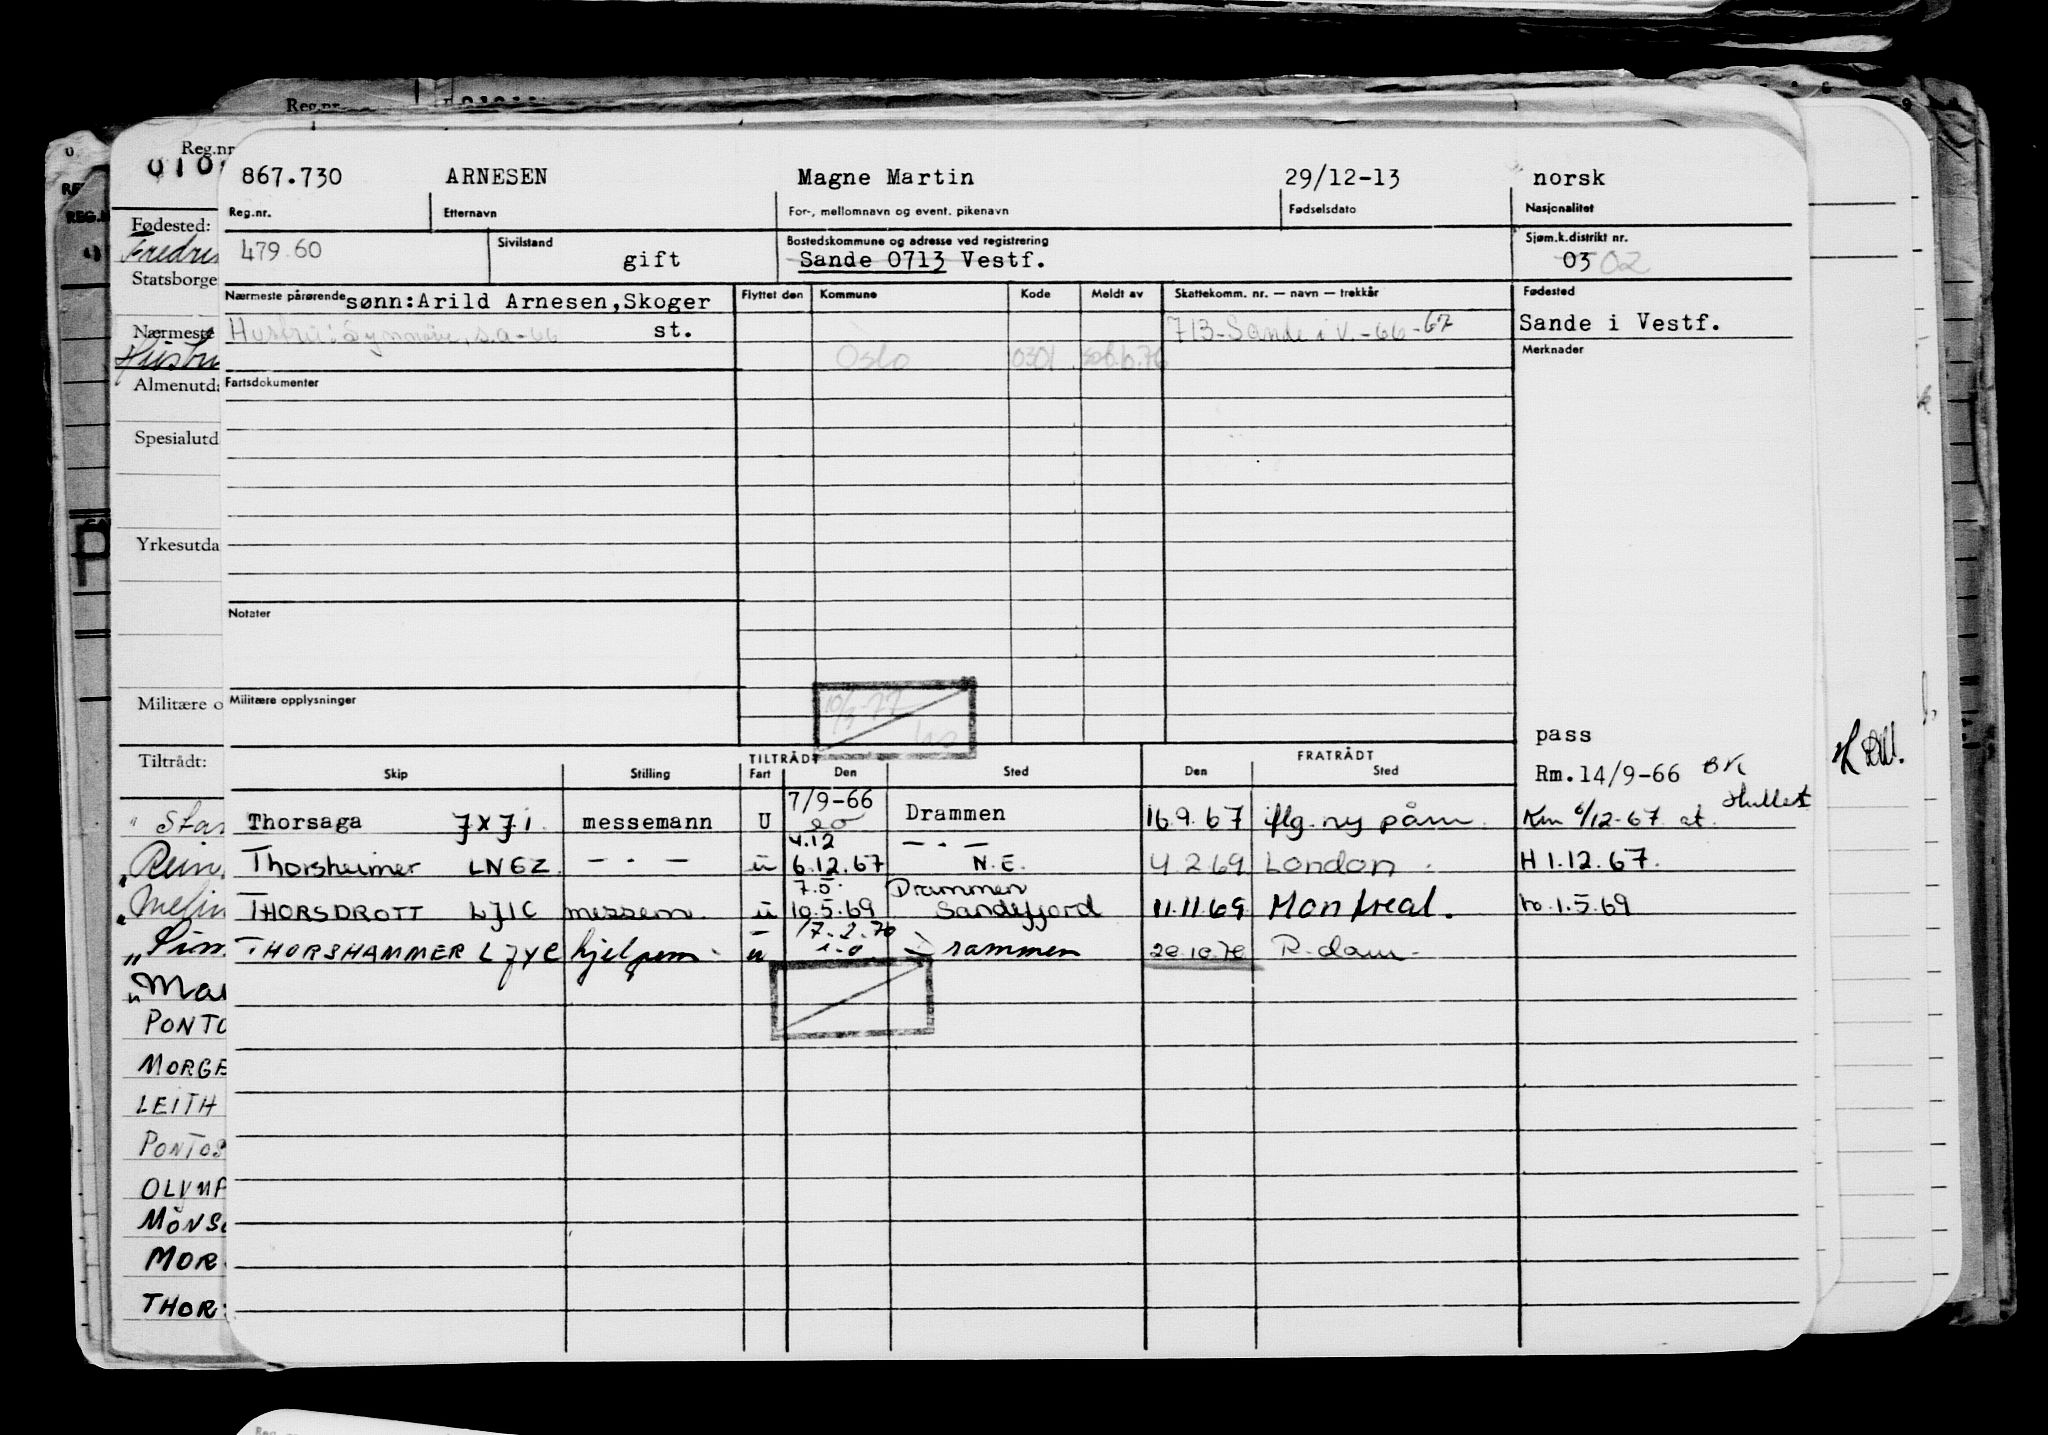 Reg.nr.
Reg.nr.
010
867.730 ARNESEN Magne Martin 29/12-13 norsk
Reg.nr. Etternavn For-, mellomnavn og event. pikenavn Fødselsdato Nasjonalitet
479.60 Sivilstand gift Bostedskommune og adresse ved registrering Sande 0713 Vestf. Sjøm.k.distrikt nr. 03 02
Nærmeste pårørende sønn:Arild Arnesen,Skoger st. Flyttet den Kommune Kode Meldt av Skattekomm. nr. — navn — trekkår Fødested
Hustru: Synnøve, s.a-66 713-Sande i V.-66-67 Sande i Vestf.
Oslo 0301 Merknader
Fartsdokumenter
Notater
Militære opplysninger
10/3-77
pass
TILTRÅDT FRATRÅDT
Skip Stilling Fart Den Sted Den Sted Rm.14/9-66 BK
Thorsaga JXJI messemann U 7/9-66 Drammen 16.9.67 iflg. ny påm. Km 6/12-67 at. Hullest
Thorsheimer LNGZ — . — u 4.12 6.12.67 — . — N.E. 4.2.69 London H 1.12.67.
THORSDROTT LJIC messem. u 7.5. 10.5.69 Drammen Sandefjord 11.11.69 Montreal. 1.5.69
THORSHAMMER LJYC hjelpem. u 17.2.70 Drammen 20.10.70 R-dam.
Fødested:
Statsborge
Nærmeste
Hustru
Almenutd
Spesialutd
Yrkesutda
Militære o
Tiltrådt:
PONTO
MORGE
LEITH
PONTOS
OLYMP
MONS
MOR
THOR